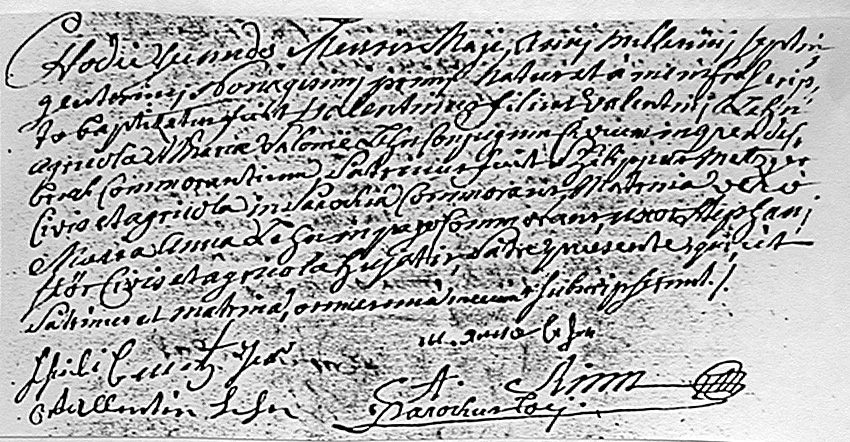 Hodie secunda Mensis Maji, Anni millesimi septin,
gentesimi Nonagesimi primi natus et à me infrascrip,
to baptizatus fuit Valentinus filius Valentini Lehn
agricola et Maria Salome Lehn Conjugum Civium in
Commorantium. Patrinus fuit Philippus Metzger
Civis et agricola in Parochia Commorans, Matrina vero
Maria Anna Lehn in pago Commorans, uxor Stephani
Civis et agricola hujatis, Patre presente, qui, ut
Patrinus et matrina, omnes mecum Subscripserunt./.
m. anna lehn
Vallentin Lehn
Parochus loci.